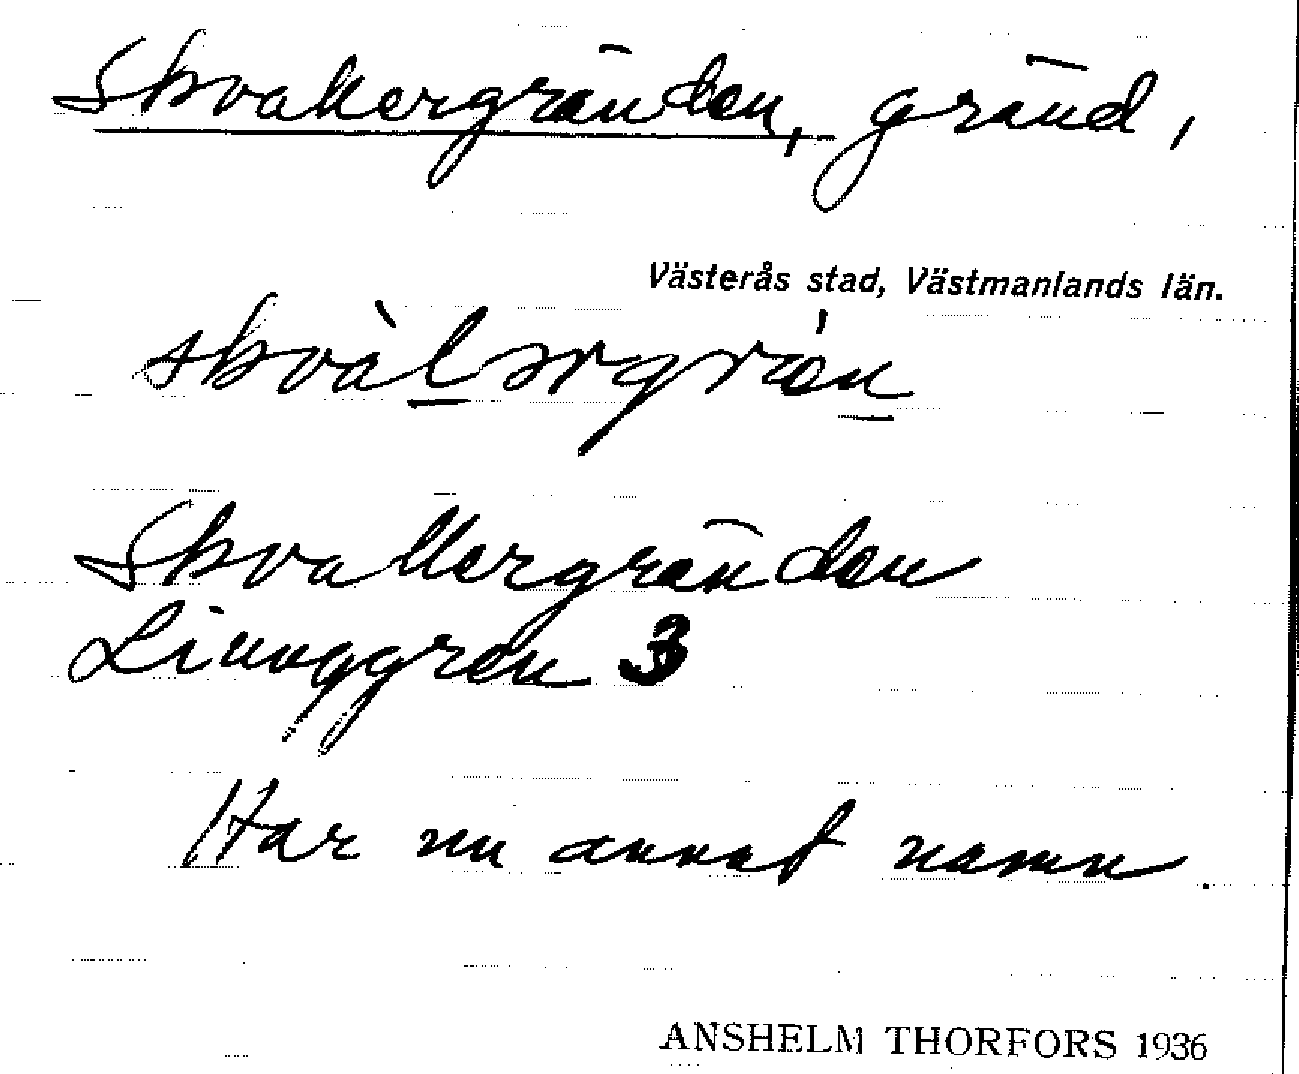 Skvallergränden, gränd,
Västerås stad, Västmanlands län.
Skvallergränden
Linnggren 3
Har nu annat namn.
ANSHELM THORFORS 1936